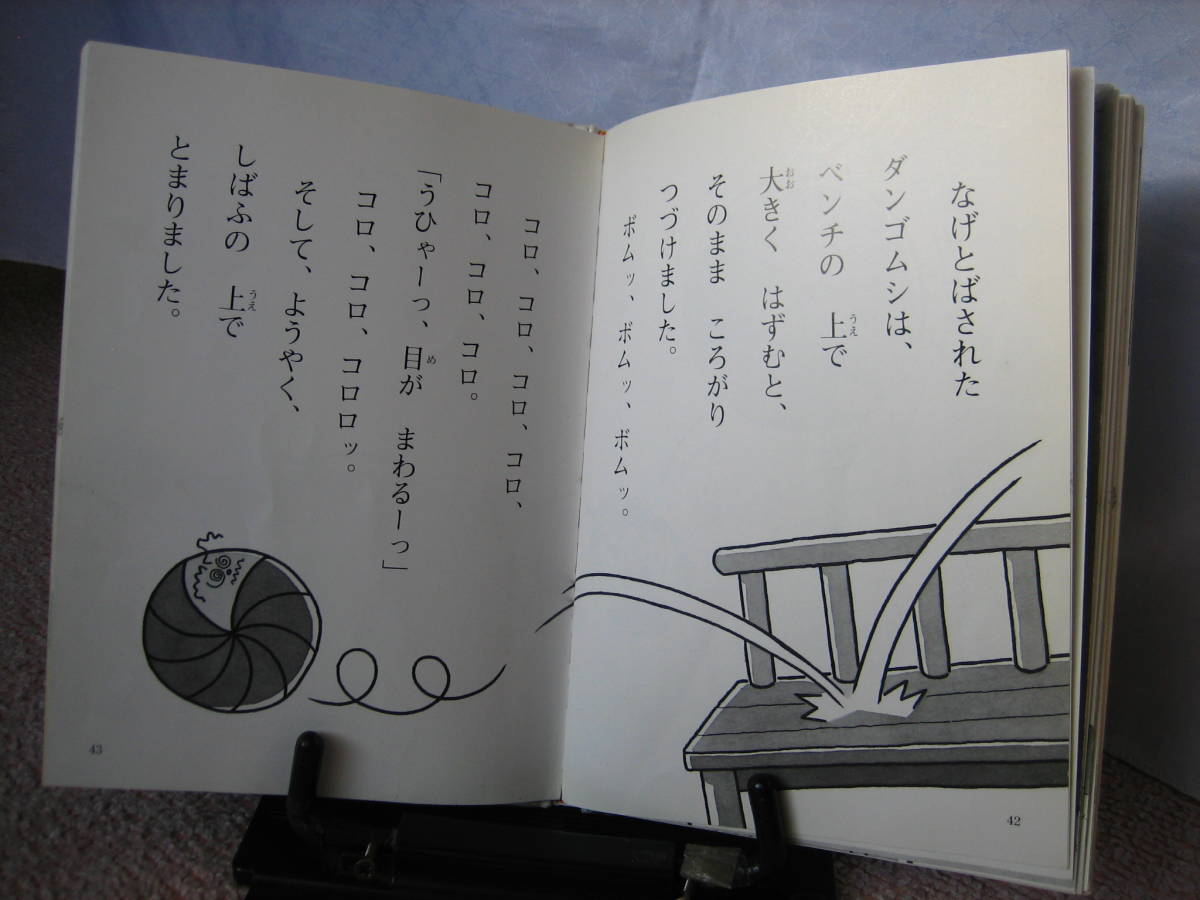 なげとばされた
ダンゴムシは、
ベンチの 上で
大きく はずむと、
そのまま ころがり
つづけました。
ボムッ、ボムッ、ボムッ。
42
コロ、コロ、コロ、コロ、コロ、
コロ、コロ、コロ。
「うひゃーっ、目が まわるーっ」
コロ、コロ、コロロッ。
そして、ようやく、
しばふの 上で
とまりました。
43